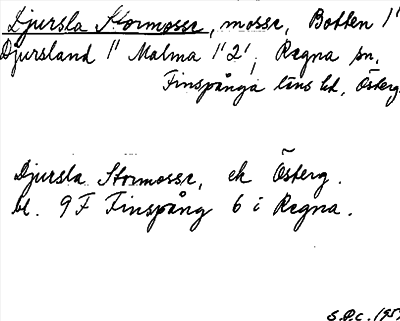 Djursla Stormosse, mosse, Botten 1'
Djursland 1' Malma 1'2', Regna sn,
Finspånga läns hd, Österg.
Djursla Stormosse, ek Österg.
bl. 9F Finspång 6 i Regna.
S.P.C. 195